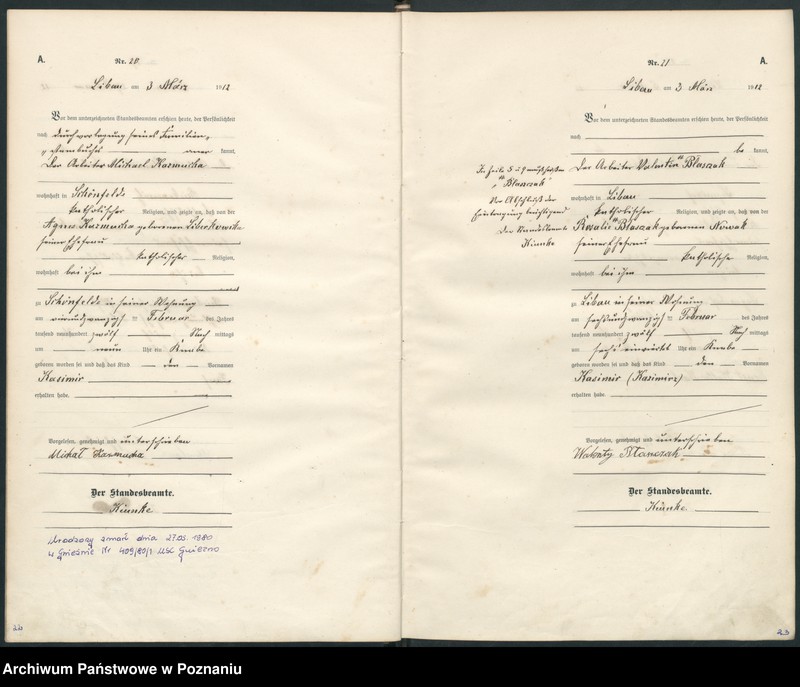 A.
Nr. 20.
Liban am 3 März 1912
Vor dem unterzeichneten Standesbeamten erschien heute, der Persönlichkeit
nach durch Vorlegung seines Familien-
stammbuchs kannt,
Der Arbeiter Michael Kazmucha
wohnhaft in Schönfelde
katholischer Religion, und zeigte an, daß von der
Agnes Kazmucha geborenen
seiner Ehefrau
katholischer Religion,
wohnhaft bei ihm
zu Schönfelde in seiner Wohnung
am vierundzwanzigsten Februar des Jahres
tausend neunhundert zwölf Nach mittags
um neun Uhr ein Knabe
geboren worden sei und daß das Kind den Vornamen
Kasimir
erhalten habe.
Vorgelesen, genehmigt und unterschrieben
Michał Kazmucha
Der Standesbeamte.
Künke
Urodzony zmarł dnia 27.03.1980
w Gnieźnie Nr 409/80/I USC Gniezno
22
A.
Nr. 21
Liban am 3 März 1912
Vor dem unterzeichneten Standesbeamten erschien heute, der Persönlichkeit
nach
be kannt,
Der Arbeiter Valentin Blaszak
wohnhaft in Liban
katholischer Religion, und zeigte an, daß von der
Blaszak geborenen Nowak
seiner Ehefrau
katholische Religion,
wohnhaft bei ihm
zu Liban in seiner Wohnung
am sechsundzwanzigsten Februar des Jahres
tausend neunhundert zwölf Nach mittags
um sechs einviertel Uhr ein Knabe
geboren worden sei und daß das Kind den Vornamen
Kasimir (Kasimierz)
erhalten habe.
Vorgelesen, genehmigt und unterschrieben
Walenty Błanczak
Der Standesbeamte.
Künke
In Zeile 5 u 9 muß heißen
"Blanczak"
Vor Abschluß der
Eintragung berichtigend
Der Standesbeamte
Künke
23
Archiwum Państwowe w Poznaniu